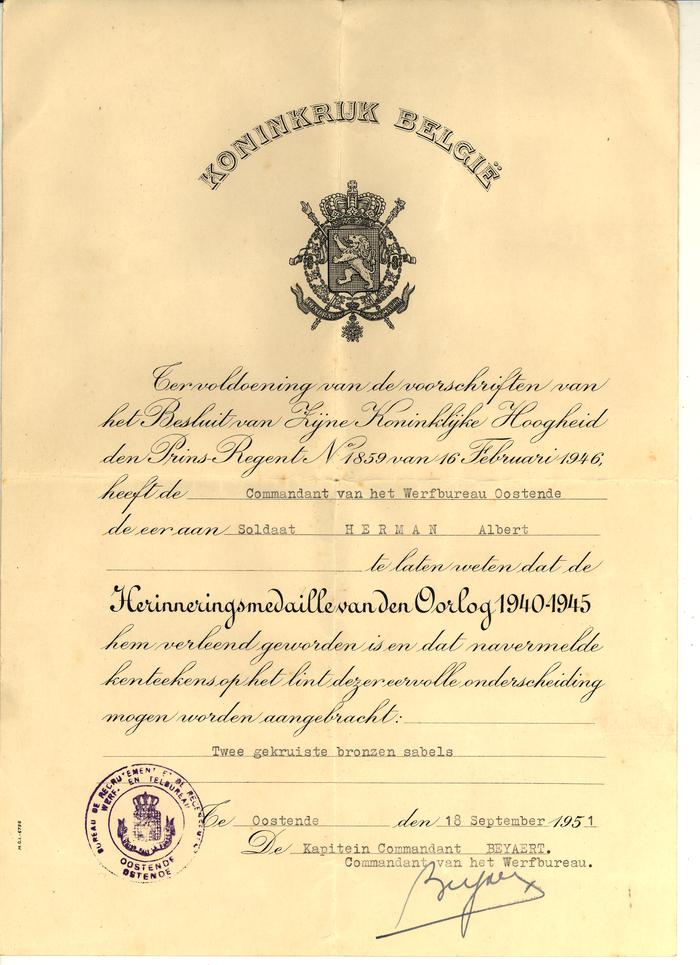 KONINKRIJK BELGIË
Ter voldoening van de voorschriften van
het Besluit van Zijne Koninklijke Hoogheid
den Prins-Regent Nº 1859 van 16 Februari 1946,
heeft de Commandant van het Werfbureau Oostende
de eer aan Soldaat H E R M A N Albert
te laten weten dat de
Herinneringsmedaille van den Oorlog 1940-1945
hem verleend geworden is en dat navermelde
kenteekens op het lint dezer eervolle onderscheiding
mogen worden aangebracht:
Twee gekruiste bronzen sabels
Te Oostende den 18 September 1951
De Kapitein Commandant BEYAERT.
Commandant van het Werfbureau.
BUREAU DE RECRUTEMENT ET DE
WERF- EN TELBUREAU
OOSTENDE
OSTENDE